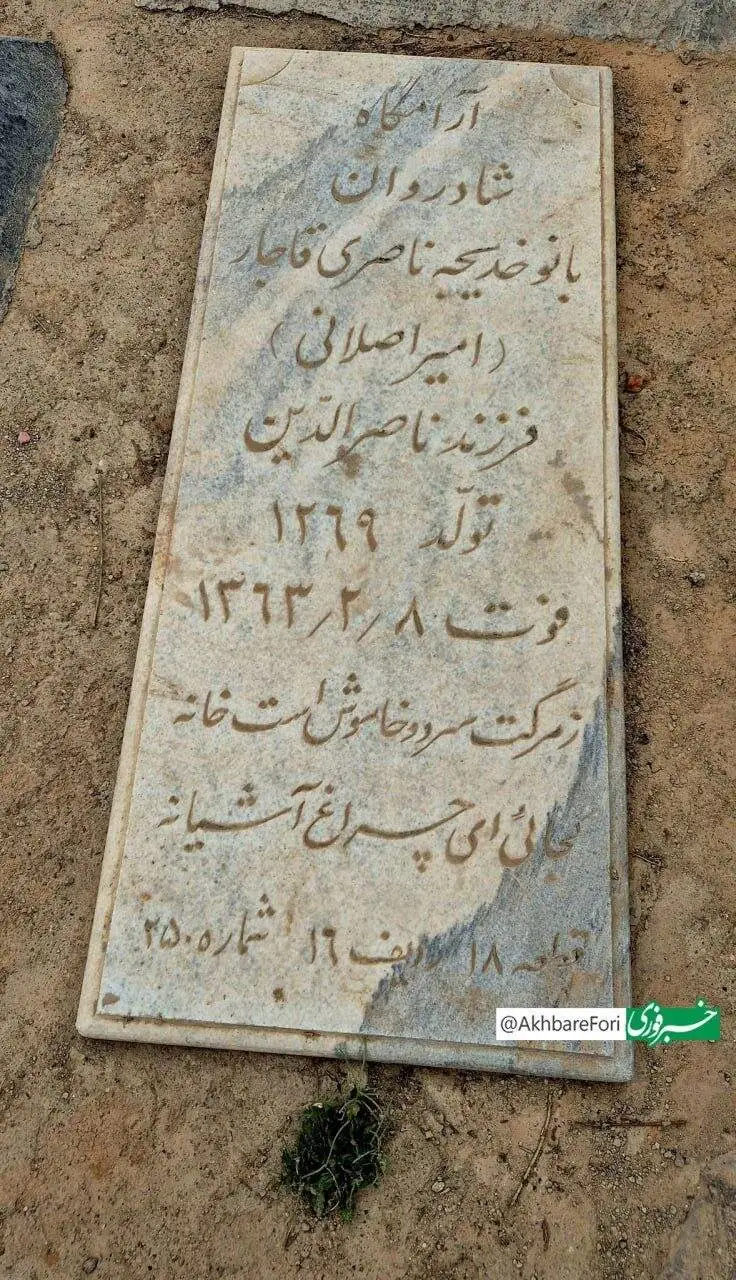 آرامگاه
شادروان
بانو خدیجه ناصری قاجار
(امیراصلانی)
فرزند ناصرالدّین
تولّد ۱۲۶۹
فوت ۱۳۶۳٫۲٫۸
ز مرگت سرد و خاموش است خانه
کجائی ای چراغ آشیانه
قطعه ۱۸ ردیف ۱۶ شماره ۲۵۰
@AkhbareFori خبرفوری